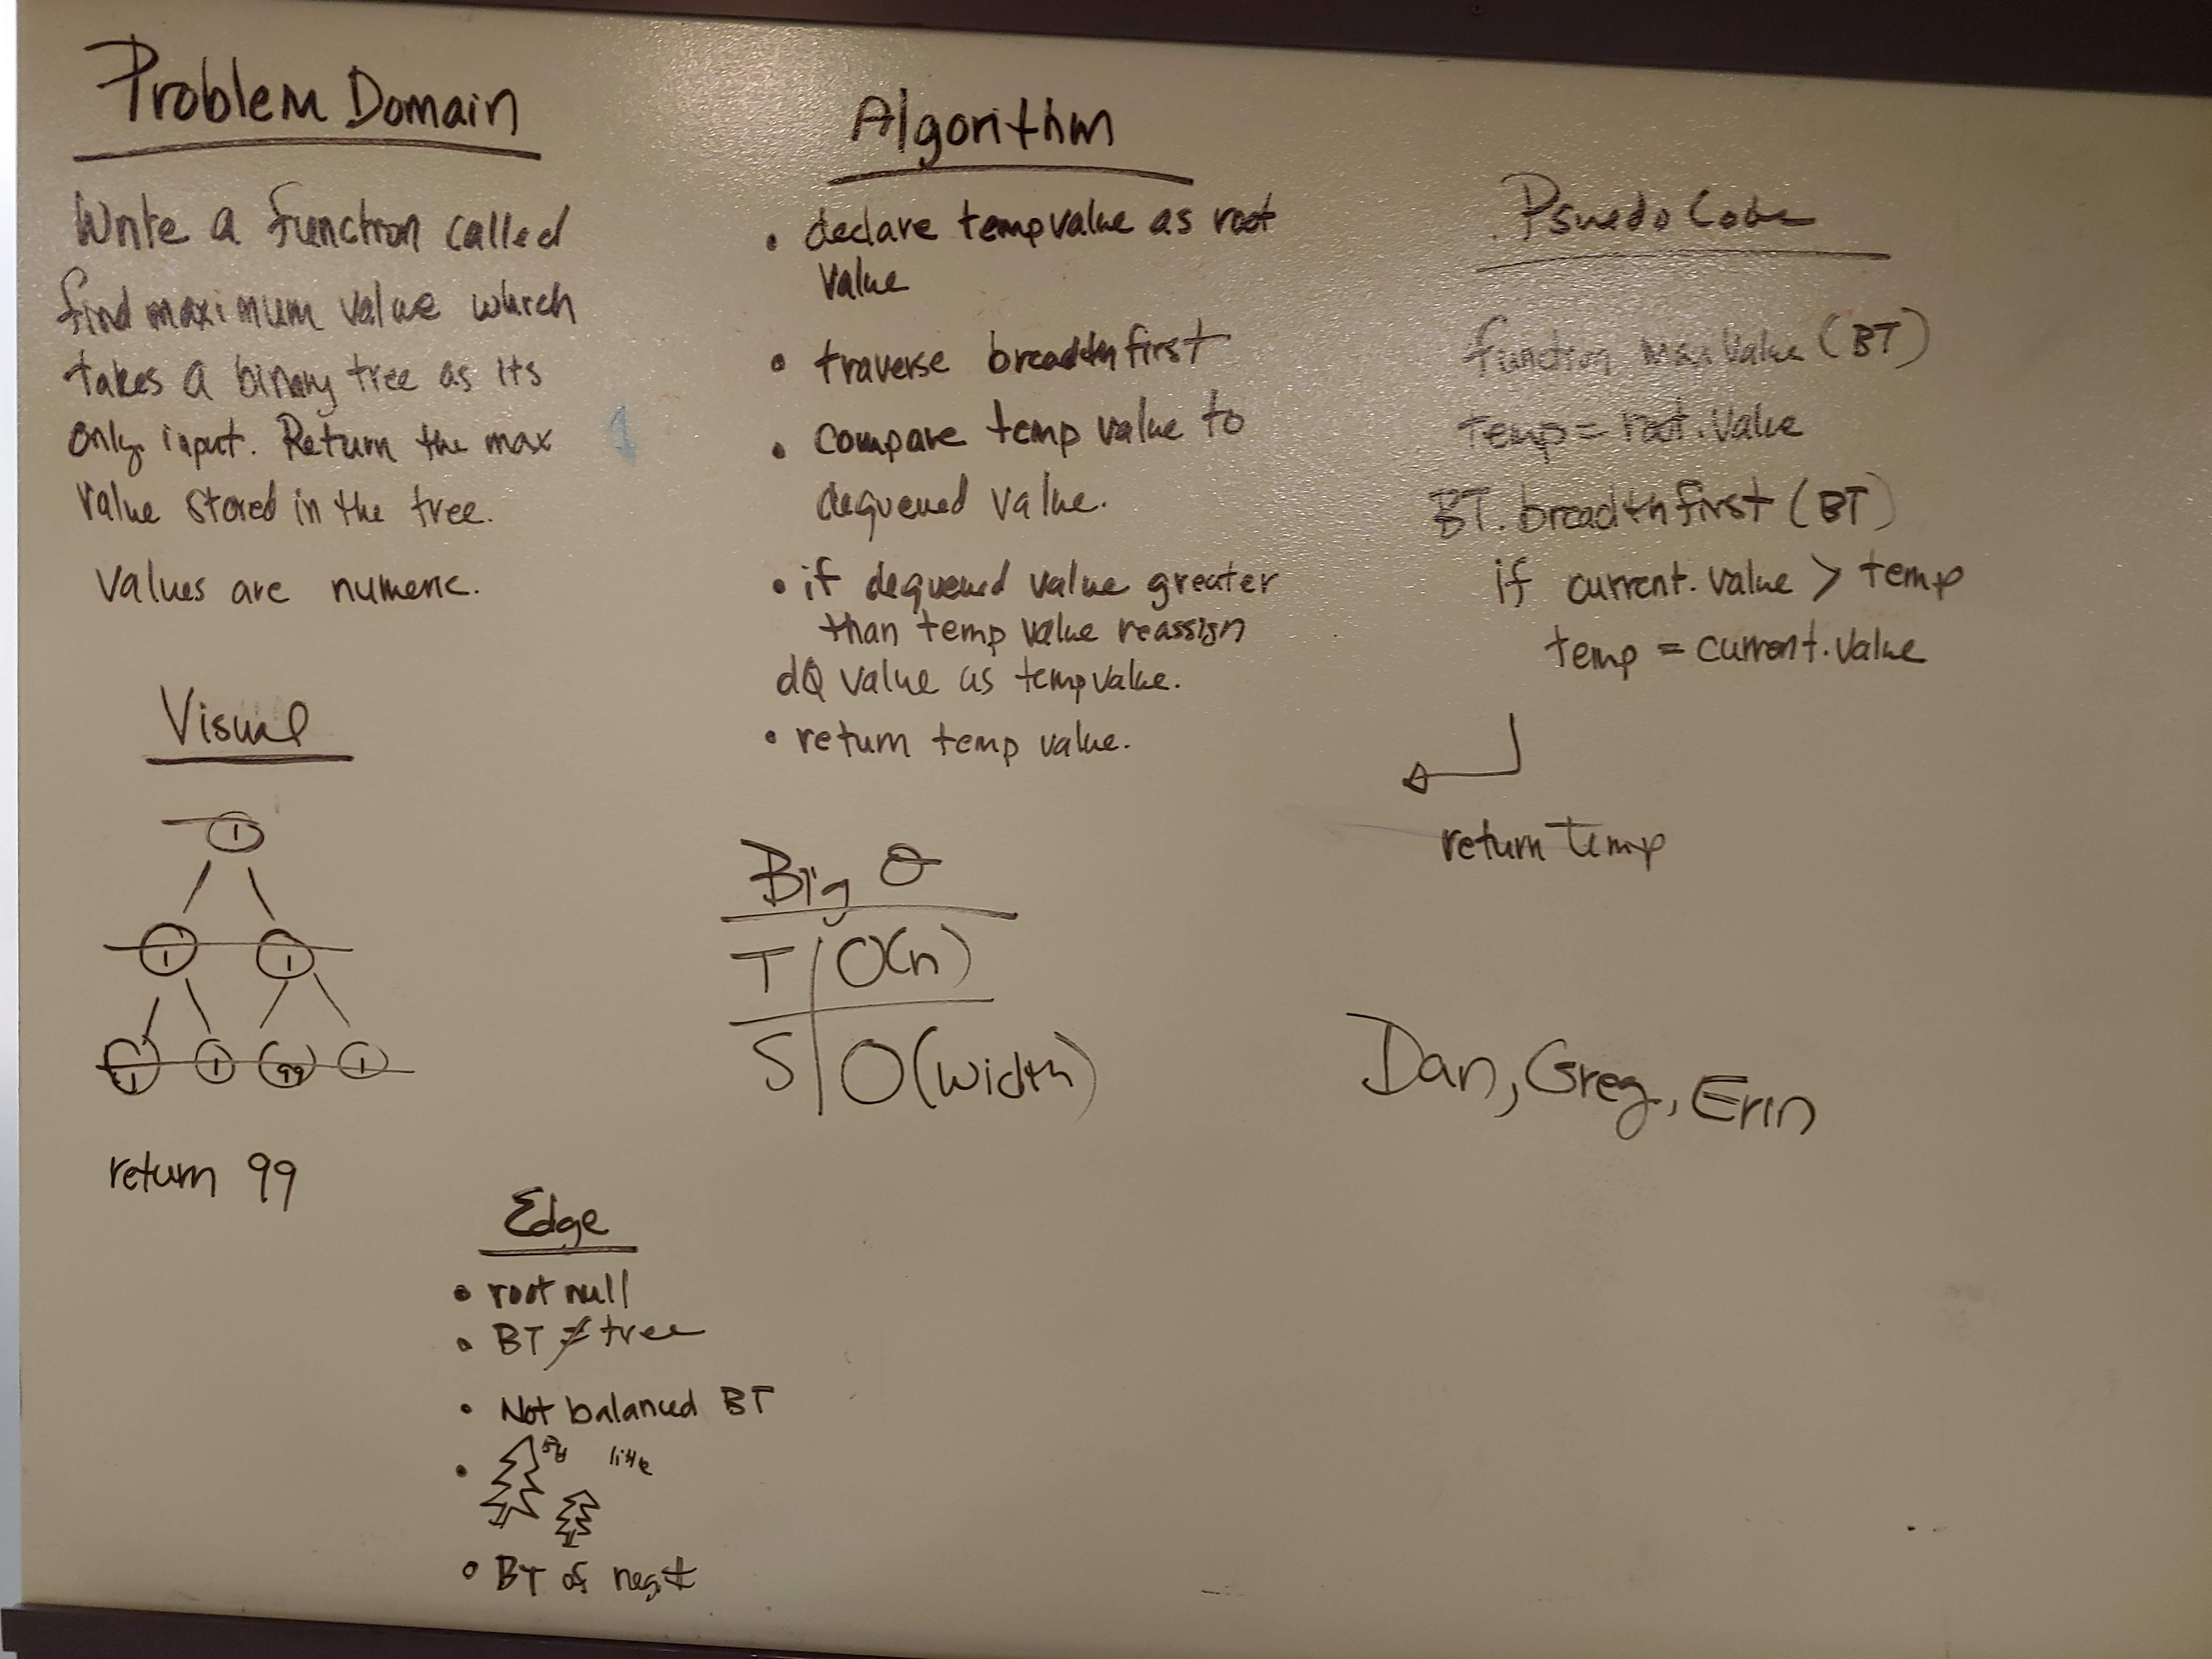 Problem Domain
Write a function called
find maximum value which
takes a binary tree as its
only input. Return the max
value stored in the tree.
Values are numeric.
1
Visual
1
1 1
1 1 99 1
return 99
Algorithm
• declare tempvalue as root
value
• traverse breadth first
• compare temp value to
dequeued value.
• if dequeued value greater
than temp value reassign
dQ value as tempvalue.
• return temp value.
Big O
T | O(n)
S | O(width)
Edge
• root null
• BT ≠ tree
• Not balanced BT
• little
• BT of neg #
Psuedo Code
function max Value (BT)
temp = root.value
BT. breadth first (BT)
if current. value > temp
temp = current.value
return temp
Dan, Greg, Erin